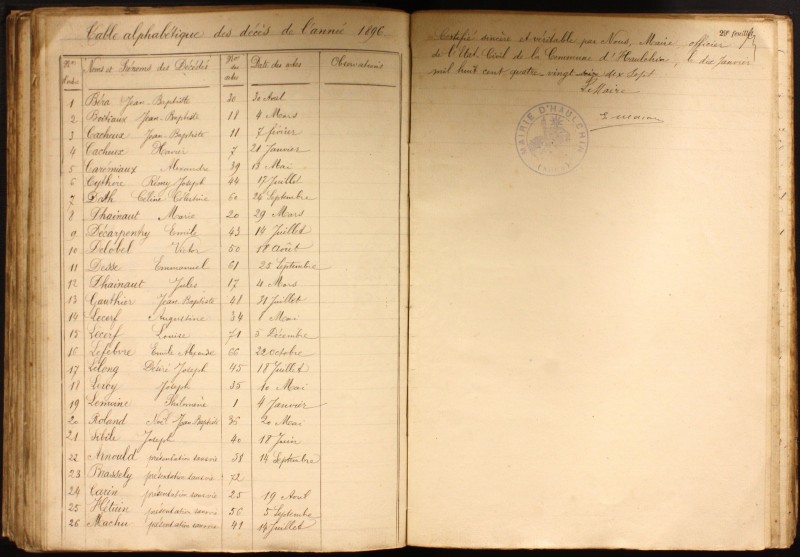 Table alphabétique des décès de l'année 1896
Nos d'ordre Noms et Prénoms des Décédés Nos des actes Date des actes Observations
1 Béra Jean Baptiste 30 30 Avril
2 Boitiaux Jean Baptiste 18 4 Mars
3 Cacheux Jean Baptiste 11 7 février
4 Cacheux Xavier 7 21 Janvier
5 Caremiaux Alexandre 39 13 Mai
6 Cythère Rémy Joseph 44 17 Juillet
7 Céline Célestine 60 24 Septembre
8 Dhainaut Marie 20 29 Mars
9 Décarpentry Emile 43 14 Juillet
10 Delobel Victor 50 18 Août
11 Desse Emmanuel 61 25 Septembre
12 Dhainaut Jules 17 4 Mars
13 Gauthier Jean Baptiste 48 31 Juillet
14 Lecerf Augustine 34 8 Mai
15 Lecerf Louise 71 5 Décembre
16 Lefebvre Emile 66 22 octobre
17 Lelong Désiré Joseph 45 18 Juillet
18 Leroy Joseph 35 10 Mai
19 Lemoine Philomène 1 4 Janvier
20 Roland Noël Jean Baptiste 36 20 Mai
21 Sibile Joseph 40 18 Juin
22 Arnould présentation sans vie 58 14 Septembre
23 Brassely présentation sans vie 72
24 Carin présentation sans vie 25 19 Avril
25 Hétuin présentation sans vie 56 5 Septembre
26 Machu présentation sans vie 41 14 Juillet
Certifié sincère et véritable par Nous, Maire, officier
de l'Etat Civil de la Commune d'Haulchin, le dix Janvier
mil huit cent quatre vingt dix Sept
Le Maire
MAIRIE D'HAULCHIN